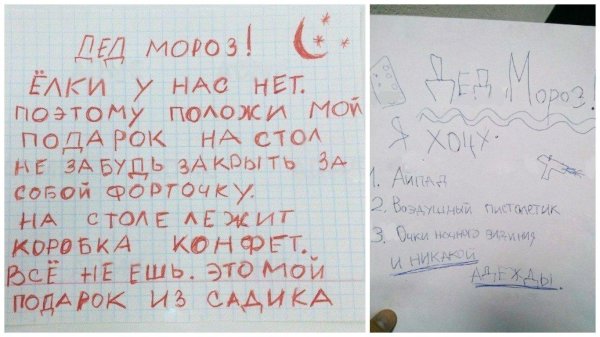 ДЕД МОРОЗ!
ЁЛКИ У НАС НЕТ.
ПОЭТОМУ ПОЛОЖИ МОЙ
ПОДАРОК НА СТОЛ
НЕ ЗАБУДЬ ЗАКРЫТЬ ЗА
СОБОЙ ФОРТОЧКУ.
НА СТОЛЕ ЛЕЖИТ
КОРОБКА КОНФЕТ.
ВСЁ НЕ ЕШЬ. ЭТО МОЙ
ПОДАРОК ИЗ САДИКА
Дед Мороз!
Я хоцу.
1. Айпад
2. Воздушный пистолетик
3. Очки ночного визиния
И НИКАКОЙ
АДЕЖДЫ.